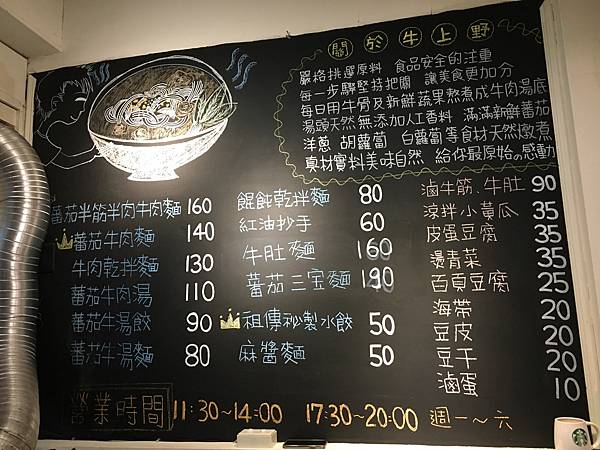 關於牛上野
嚴格挑選原料 食品安全的注重
每一步驟堅持把關 讓美食更加分
每日用牛骨及新鮮蔬果熬煮成牛肉湯底
湯頭天然無添加人工香料 滿滿新鮮蕃茄
洋蔥 胡蘿蔔 白蘿蔔等食材天然燉煮
真材實料美味自然 給你最原始の感動
蕃茄半筋半肉牛肉麵 160
蕃茄牛肉麵 140
牛肉乾拌麵 130
蕃茄牛肉湯 110
蕃茄牛湯餃 90
蕃茄牛湯麵 80
餛飩乾拌麵 80
紅油抄手 60
牛肚麵 160
蕃茄三宝麵 190
祖傳祕製水餃 50
麻醬麵 50
滷牛筋、牛肚 90
涼拌小黃瓜 35
皮蛋豆腐 35
燙青菜 35
百頁豆腐 25
海帶 20
豆皮 20
豆干 20
滷蛋 10
營業時間 11:30~14:00 17:30~20:00 週一~六